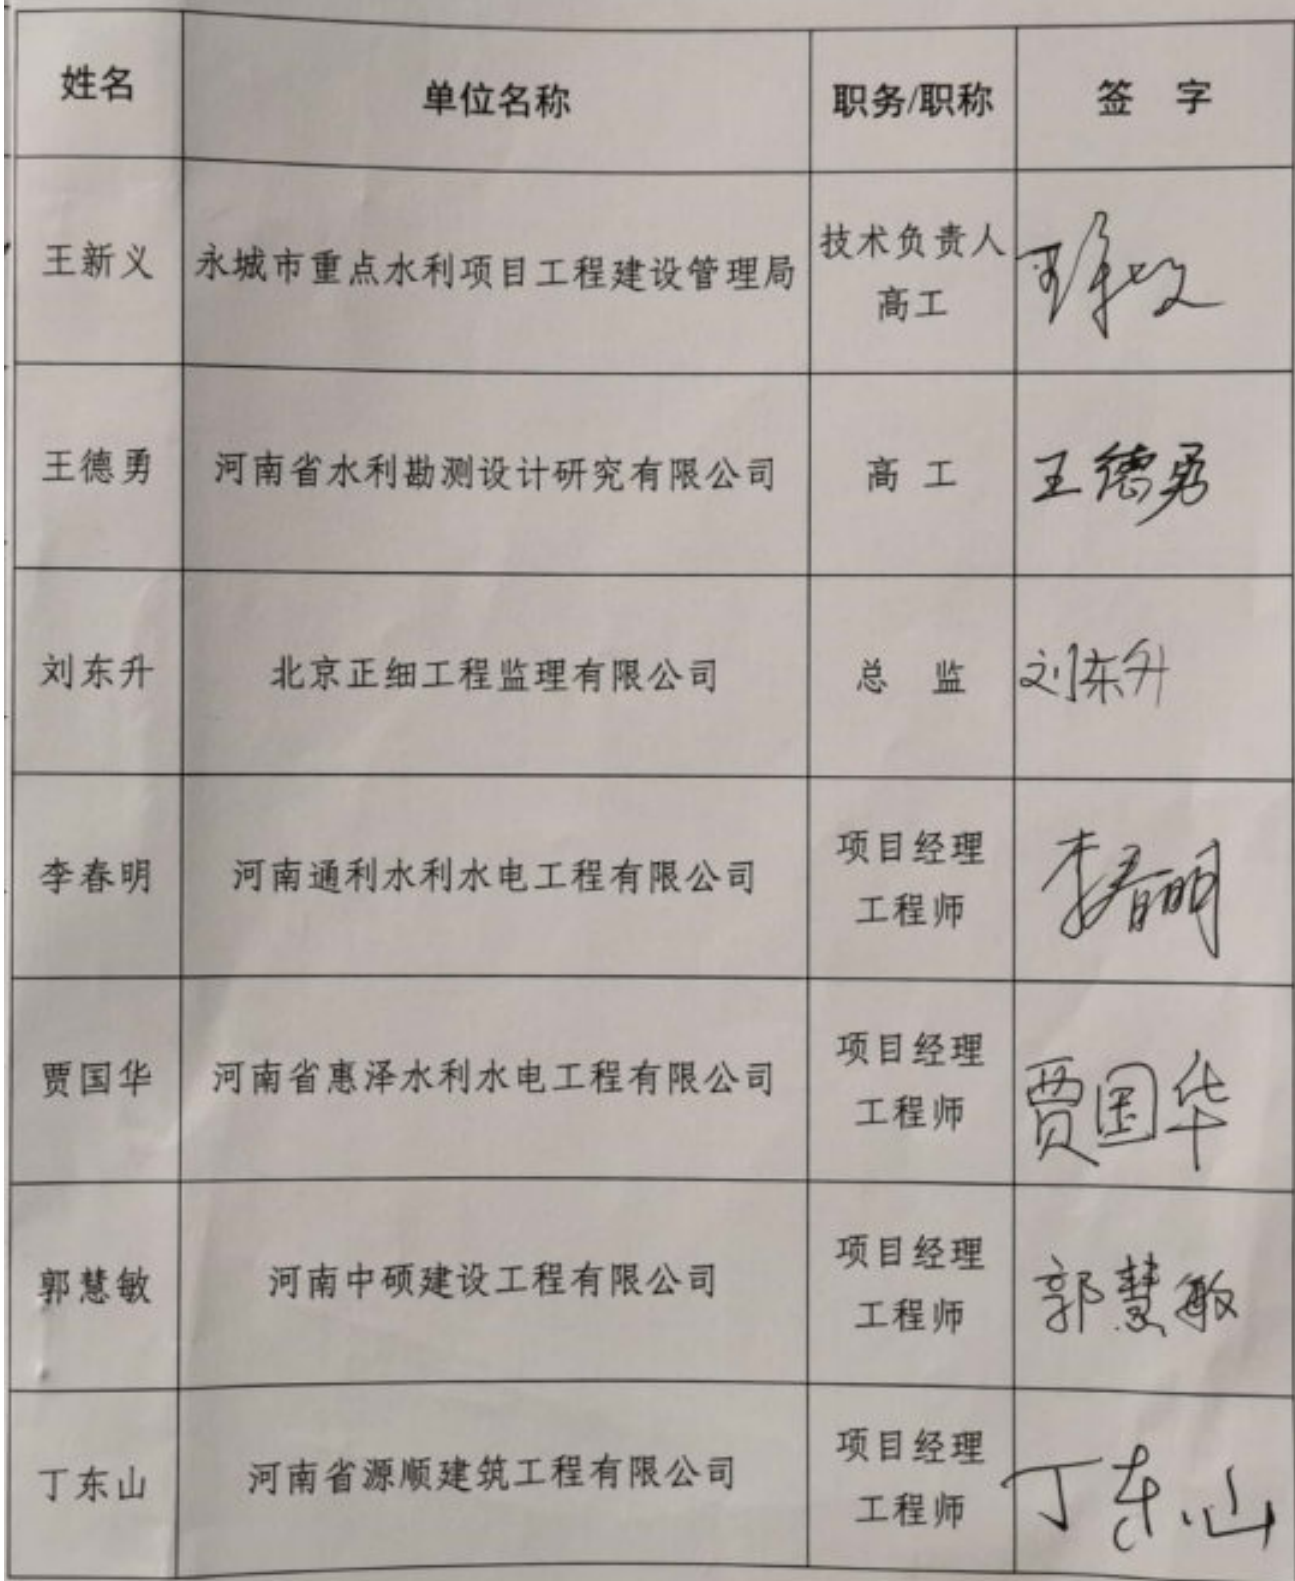 姓名 单位名称 职务/职称 签 字
王新义 永城市重点水利项目工程建设管理局 技术负责人
高工
王德勇 河南省水利勘测设计研究有限公司 高 工 王德勇
刘东升 北京正细工程监理有限公司 总 监 刘东升
李春明 河南通利水利水电工程有限公司 项目经理
工程师 李春明
贾国华 河南省惠泽水利水电工程有限公司 项目经理
工程师 贾国华
郭慧敏 河南中硕建设工程有限公司 项目经理
工程师 郭慧敏
丁东山 河南省源顺建筑工程有限公司 项目经理
工程师 丁东山